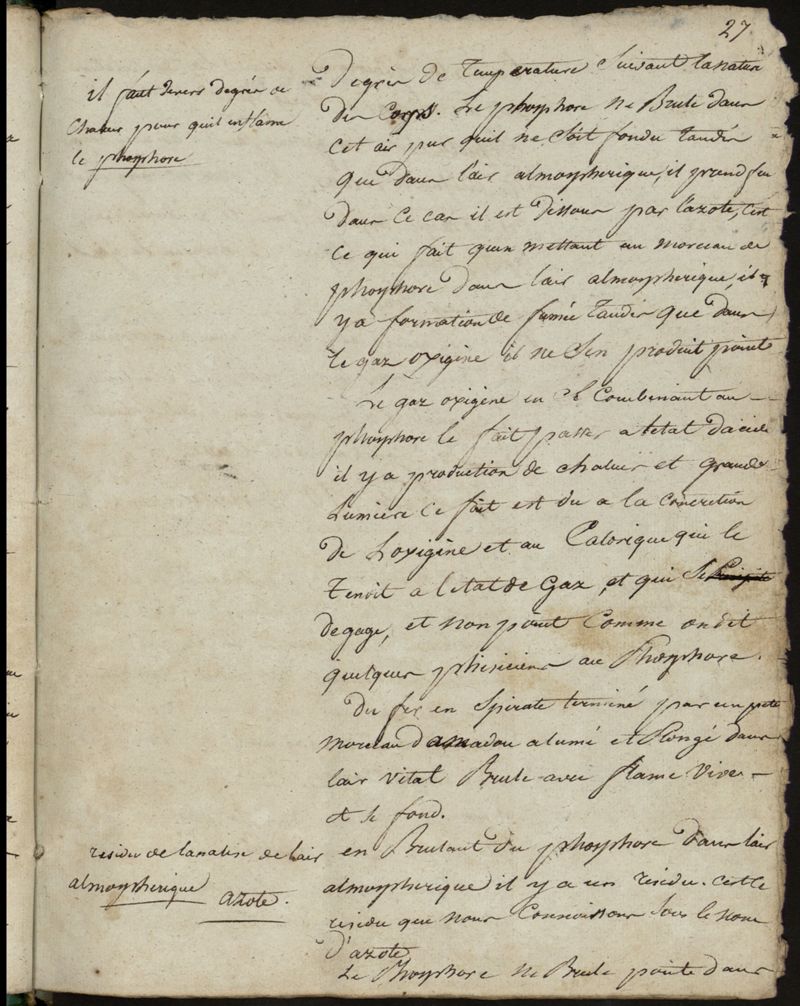 27
il faut divers degrés de
Chaleur pour quil enflame
le phosphore
Degrés de Temperature Suivant la nature
Des Corps. Le phosphore ne Brule dans
Cet air pur quil ne Soit fondu Tandis
que dans l'air atmospherique, il prend feu
dans ce cas il est Dissous par l'azote, C'est
Ce qui fait quen mettant un morceau de
phosphore dans l'air atmospherique, il
y a formation de fumée Tandis que dans
le gaz oxigine il ne Sen produit point
Le gaz oxigine en Se Combinant au
phosphore le fait passer a letat dacide
il y a production de chaleur et grande
Lumiere Ce fait est du a la Concretion
de Loxigine et au Calorique qui le
Tenoit a letat de Gaz, et qui Se
degage, et non point Comme on dit
quelques phisiciens au Phosphore.
Du fer en Spirale terminé par un petit
morceau damadou alumé et Plongé dans
lair vital Brule avec flame Vive
et Se fond.
residu de lanalise de lair
atmospherique
azote.
en Brulant du phosphore dans lair
atmospherique il y a un residu. cest le
residu que nous Connoissons Sous le nom
D'azote
Le Phosphore ne Brule point dans